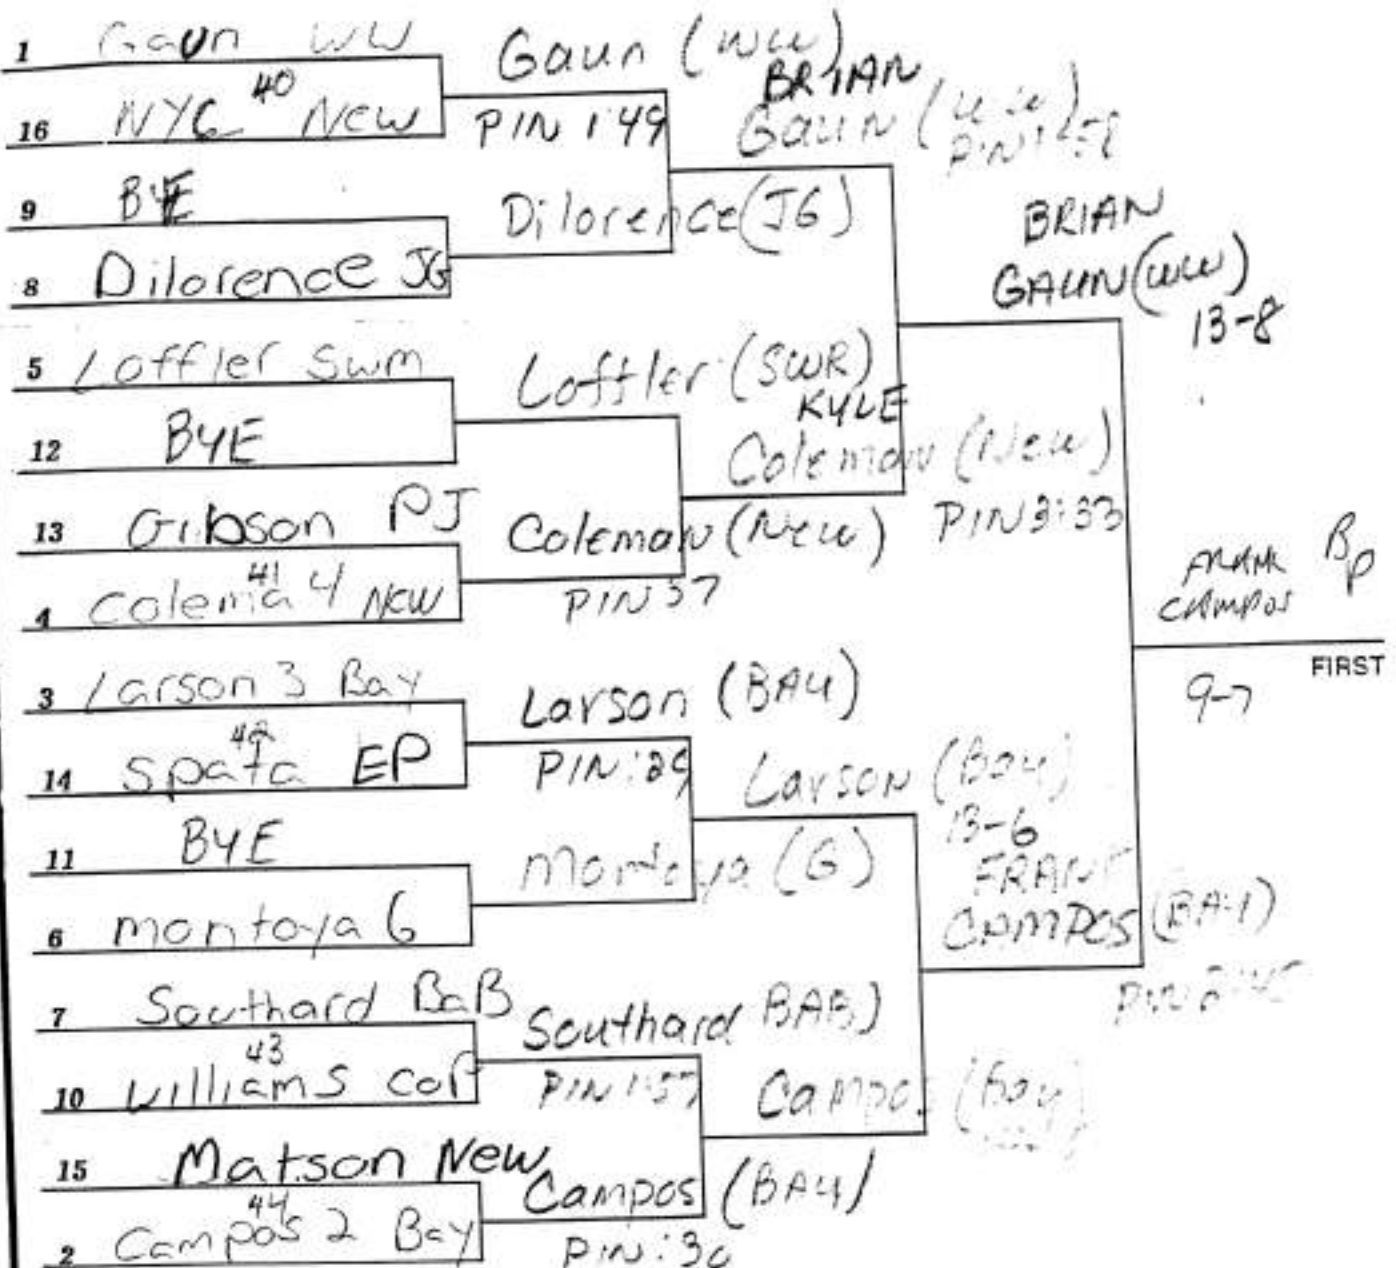 1 Gaun WW
40
16 NYC New
9 BYE
8 Dilorence JG
5 Loffler SWM
12 BYE
13 Gibson PJ
41
4 Colema 4 New
3 Larson 3 Bay
42
14 Spata EP
11 BYE
6 Montoya G
7 Southard BaB
43
10 Williams CoP
15 Matson New
44
2 Campos 2 Bay
Gaun (WW)
PIN 1:49
Dilorence (JG)
Loffler (SWR)
Coleman (New)
PIN 37
Larson (BAY)
PIN :29
Montoya (G)
Southard BAB)
PIN 1:57
Campos (BAY)
PIN :30
BRIAN
Gaun (WW)
KYLE
Coleman (New)
Larson (Bay)
13-6
Campos (Bay)
BRIAN
GAUN (WW)
13-8
PIN 3:33
FRANK
CAMPOS (BAY)
FRANK
CAMPOS
9-7
FIRST